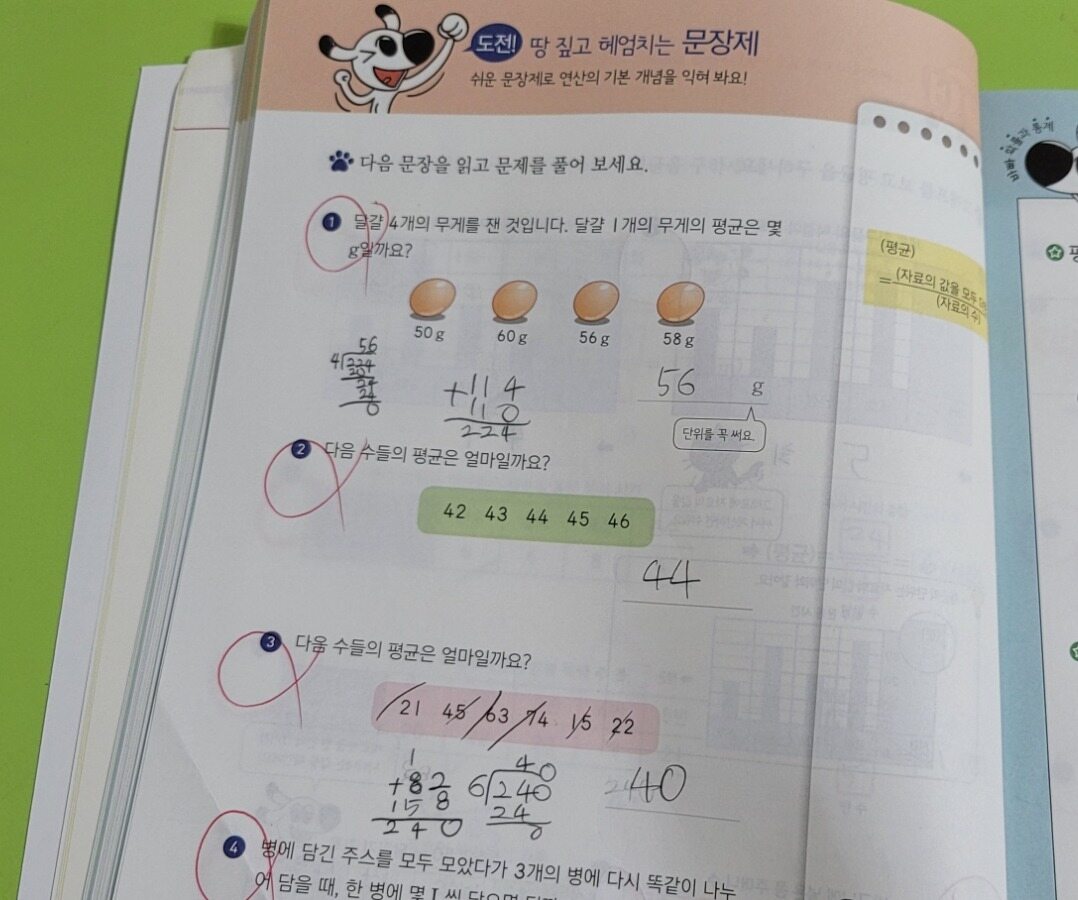 도전! 땅 짚고 헤엄치는 문장제
쉬운 문장제로 연산의 기본 개념을 익혀 봐요!
다음 문장을 읽고 문제를 풀어 보세요.
1 달걀 4개의 무게를 잰 것입니다. 달걀 1개의 무게의 평균은 몇
g일까요?
50 g 60 g 56 g 58 g
(평균)
=(자료의 값을 모두
(자료의 수)
56
4 224
20
24
24
0
+114
110
224
56 g
단위를 꼭 써요.
2 다음 수들의 평균은 얼마일까요?
42 43 44 45 46
44
3 다음 수들의 평균은 얼마일까요?
21 45 63 74 15 22
1
+82
158
240
40
6 240
24
0
40
4 병에 담긴 주스를 모두 모았다가 3개의 병에 다시 똑같이 나누
어 담을 때, 한 병에 몇
바빠 확률과 통계